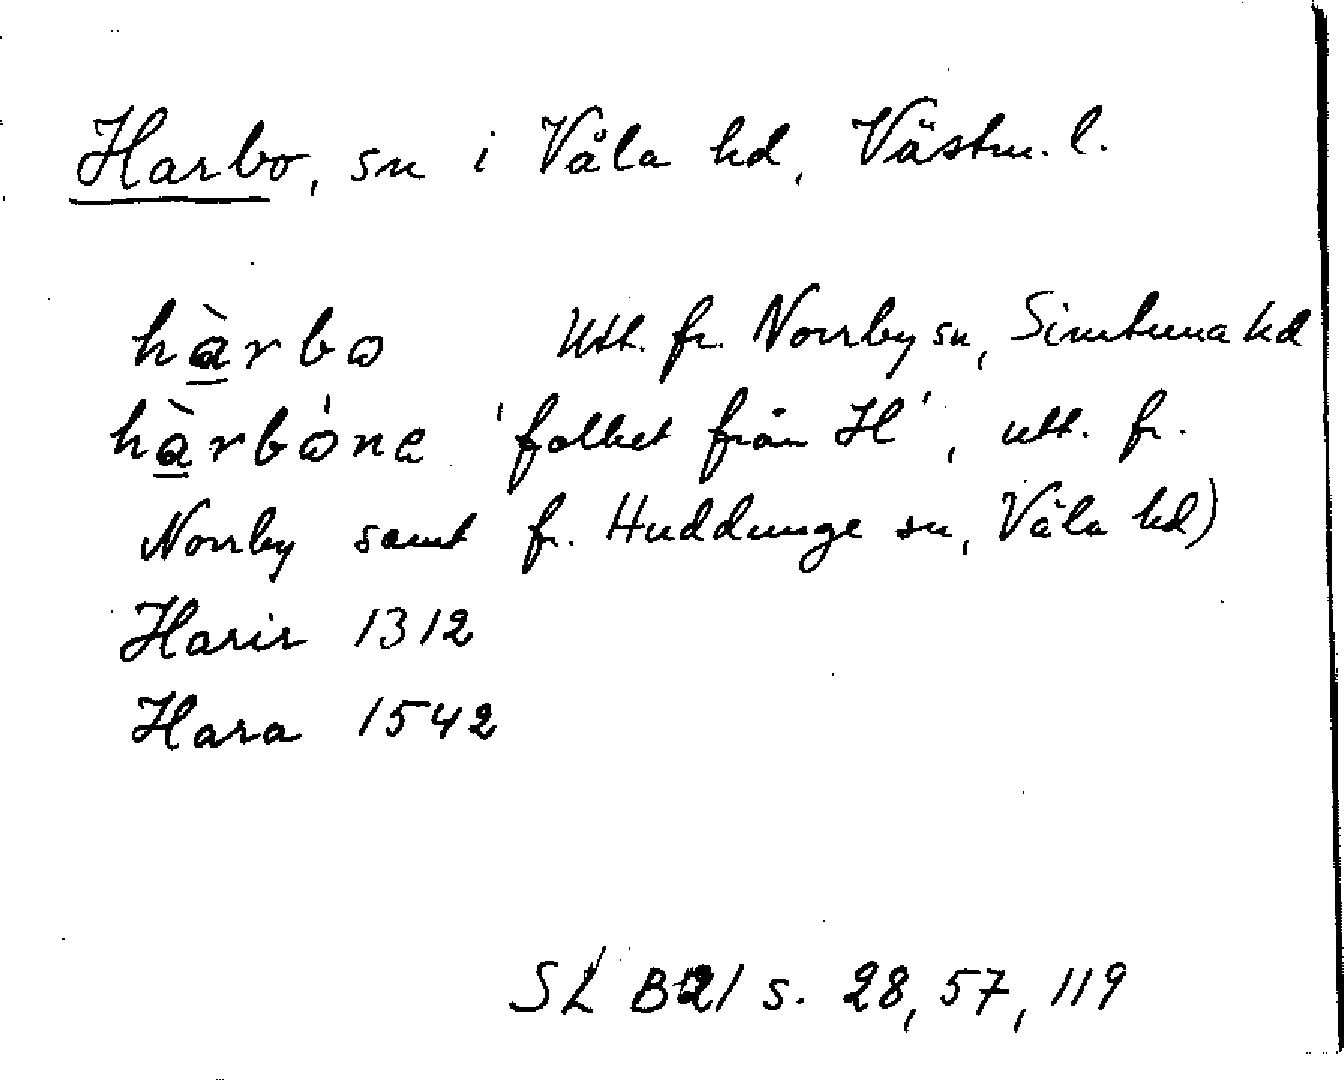 Harbo, sn i Våla hd, Västm. l.
hàrbo Utt. fr. Norrby sn, Simtuna hd
hàrbóne 'folket från H', utt. fr.
Norrby samt fr. Huddunge sn, Våla hd)
Harir 1312
Hara 1542
SL B21 s. 28, 57, 119